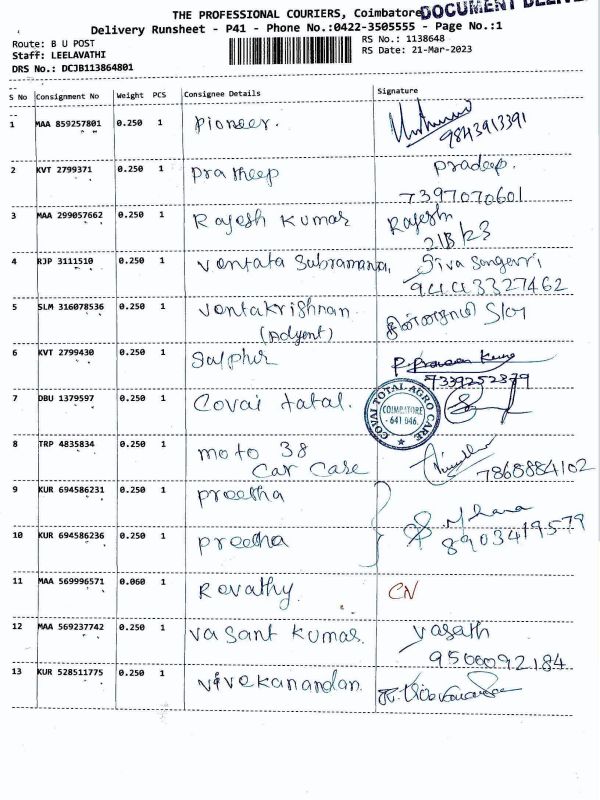 THE PROFESSIONAL COURIERS, Coimbatore
DOCUMENT
Delivery Runsheet - P41 - Phone No.:0422-3505555 - Page No.:1
Route: B U POST
RS No.: 1138648
Staff: LEELAVATHI
RS Date: 21-Mar-2023
DRS No.: DCJB113864801
S No Consignment No Weight PCS Consignee Details Signature
1 MAA 859257801 0.250 1 Pioneer.
9843913391
2 KVT 2799371 0.250 1 Pratheep Pradeep.
7397070601
3 MAA 299057662 0.250 1 Rajesh Kumar Rajesh
21/3/23
4 RJP 3111510 0.250 1 Venkata Subramania,
94443327462
5 SLM 316078536 0.250 1 Venkatkrishnan
(Adyent)
6 KVT 2799430 0.250 1 Sulphur
7339252879
7 DBU 1379597 0.250 1 Covai total.
COVAI TOTAL AGRO CARE
COIMBATORE
- 641 046.
8 TRP 4835834 0.250 1 moto 38
Car Care
7868884102
9 KUR 694586231 0.250 1 preetha
10 KUR 694586236 0.250 1 preetha
8903419579
11 MAA 569996571 0.060 1 Revathy. CN
12 MAA 569237742 0.250 1 Vasant Kumar. Vasath
9500092184
13 KUR 528511775 0.250 1 Vivekanandan.